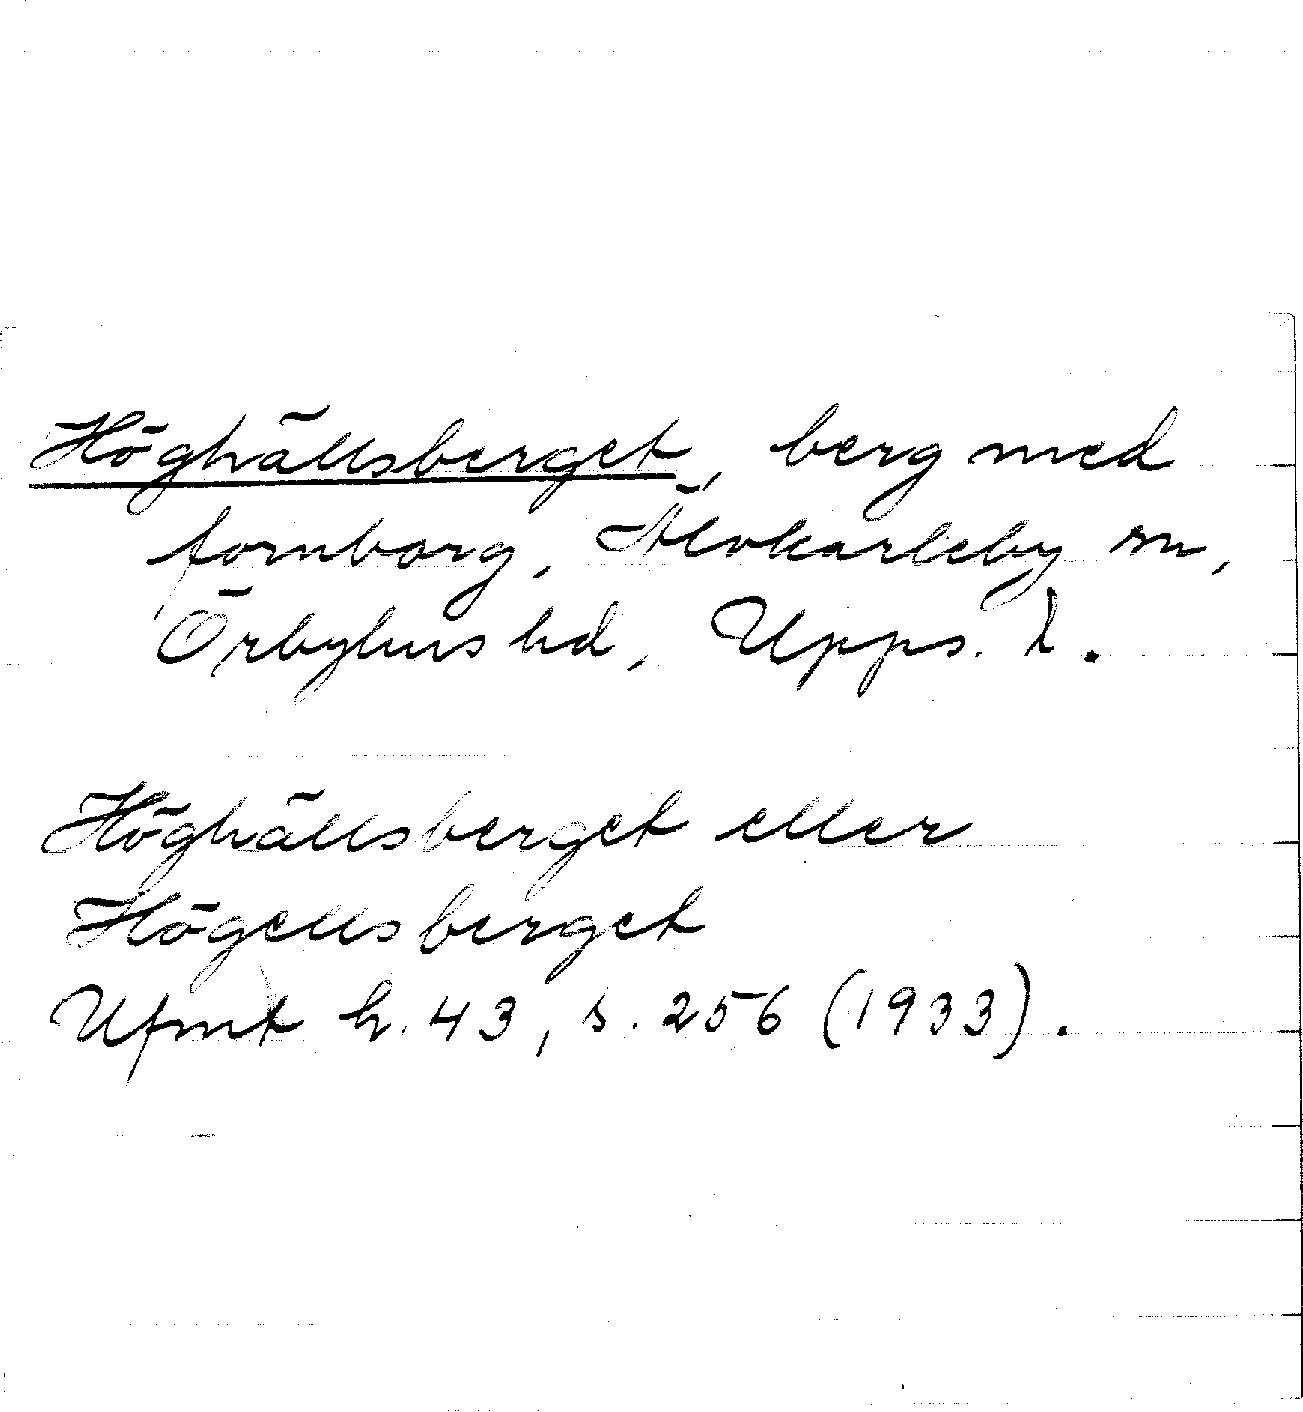 Höghällsberget, berg med
fornborg, Älvkarleby sn,
Örbyhus hd, Upps. l.
Höghällsberget eller
Högellsberget
Ufmt h. 43, s. 256 (1933).